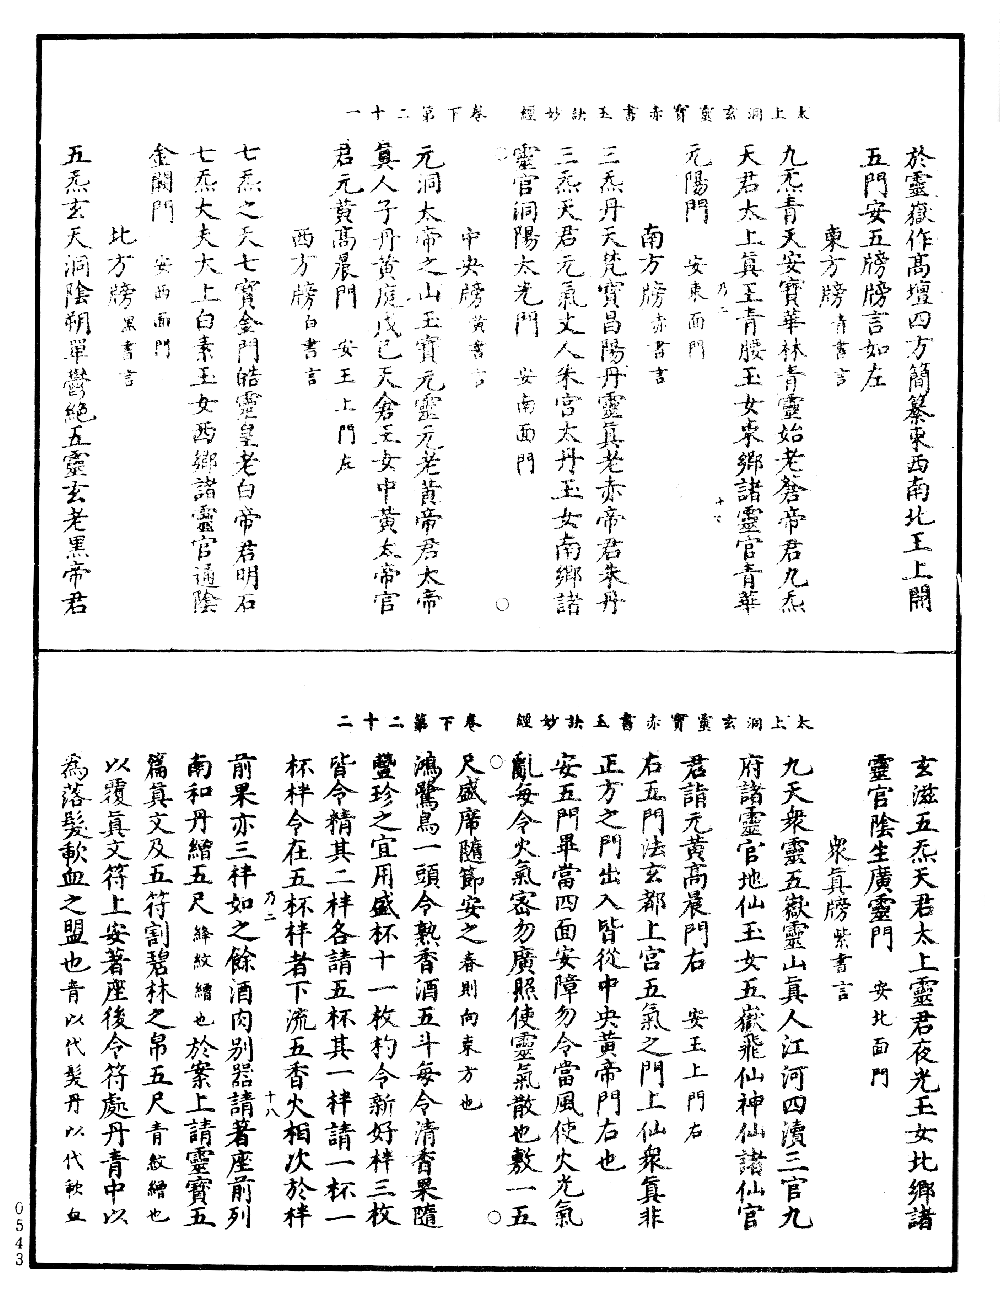 太上洞玄靈寶赤書玉訣妙經　卷下　第二十一
於靈嶽作髙壇四方簡纂東西南北王上開
五門安五牓牓言如左
東方牓青書言
九炁青天安寶華林青靈始老蒼帝君九炁
天君太上眞王青腰玉女東鄉諸靈官青華
元陽門　安東面門
乃二
十七
南方牓赤書言
三炁丹天梵寶昌陽丹靈眞老赤帝君朱丹
三炁天君元氣丈人朱宫太丹玉女南鄉諸
靈官洞陽太光門　安南面門
中央牓黄書言
元洞太帝之山玉寶元靈元老黄帝君太帝
眞人子丹黄庭戊己天倉玉女中黄太帝官
君元黄髙晨門　安王上門左
西方牓白書言
七炁之天七寶金門皓靈皇老白帝君明石
七炁大夫大上白素玉女西鄉諸靈官通陰
金闕門　安西面門
北方牓黑書言
五炁玄天洞陰朔單鬱絶五靈玄老黑帝君
太上洞玄靈寶赤書玉訣妙經　卷下　第二十二
玄滋五炁天君太上靈君夜光玉女北鄉諸
靈官陰生廣靈門　安北面門
衆眞牓紫書言
九天衆靈五嶽靈山眞人江河四瀆三官九
府諸靈官地仙玉女五嶽飛仙神仙諸仙官
君詣元黄髙晨門右　安王上門右
右五門法玄都上宫五氣之門上仙衆眞非
正方之門出入皆從中央黄帝門右也
安五門畢當四面安障勿令當風使火光氣
亂每令火氣密勿廣照使靈氣散也敷一五
尺盛席隨節安之春則向東方也
鴻鷺鳥一頭令熟香酒五斗每令清香果隨
豐珍之宜用盛杯十一枚杓令新好柈三枚
皆令精其二柈各請五杯其一柈請一杯一
杯柈令在五杯柈者下流五香火相次於柈
乃二
十八
前果亦三柈如之餘酒肉别器請著座前列
南和丹繒五尺絳紋繒也於案上請靈寶五
篇眞文及五符割碧林之帛五尺青紋繒也
以覆眞文符上安著座後令符處丹青中以
為落髮歃血之盟也青以代髮丹以代歃血
0543